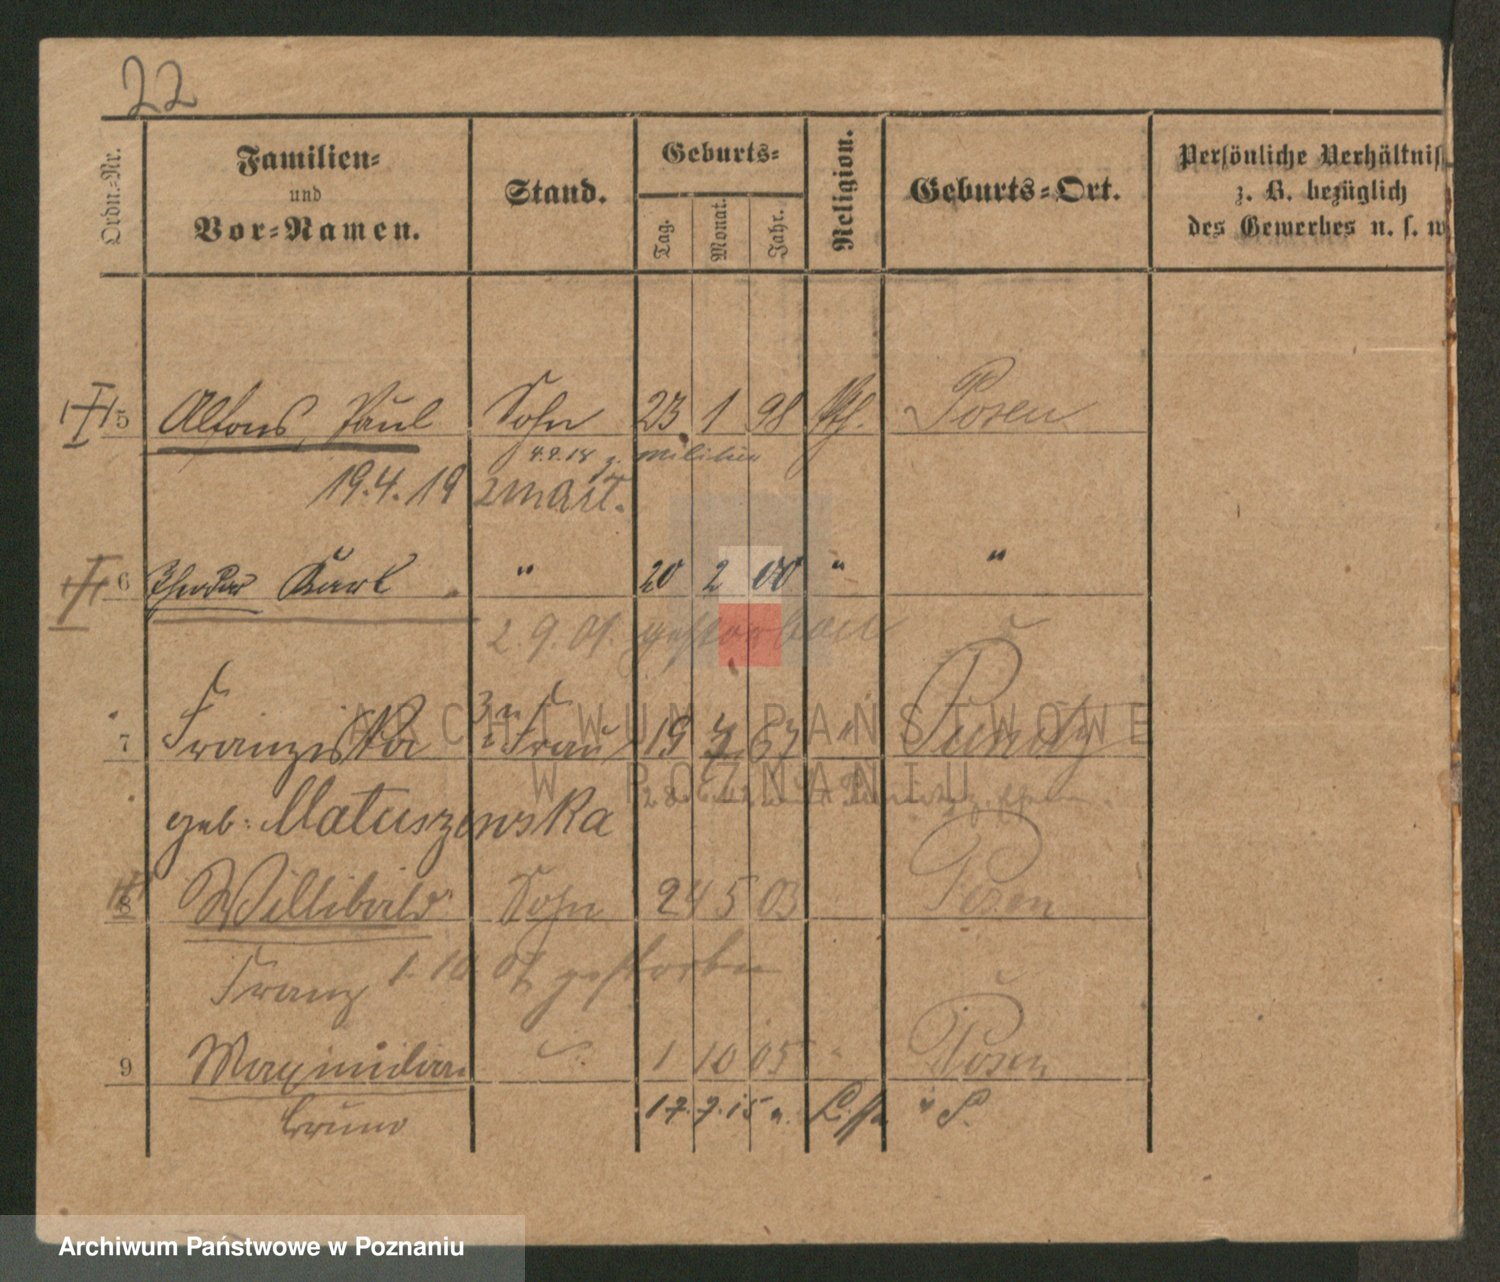 22
Ordn.-Nr.
Familien-
und
Vor-Namen.
Stand.
Geburts-
Tag.
Monat.
Jahr.
Religion.
Geburts-Ort.
Persönliche Verhältnis
z. B. bezüglich
des Gewerbes u. s. w
5 Alfons Paul Sohn 23 1 98 kth. Posen
4.9.18 z. Militär
19.4.19 zmarł.
6 Theodor Karl " 20 2 00 " "
2.9.01. gestorben
7 Franziska Frau 19 7 67 "
geb. Matuszewska
8 Willibald Sohn 24 5 03 Posen
Franz 1.10 07 gestorben
9 Maximilian 1 10 05 " Posen
Bruno 17.7.15 n.
ARCHIWUM PAŃSTWOWE
W POZNANIU
Archiwum Państwowe w Poznaniu